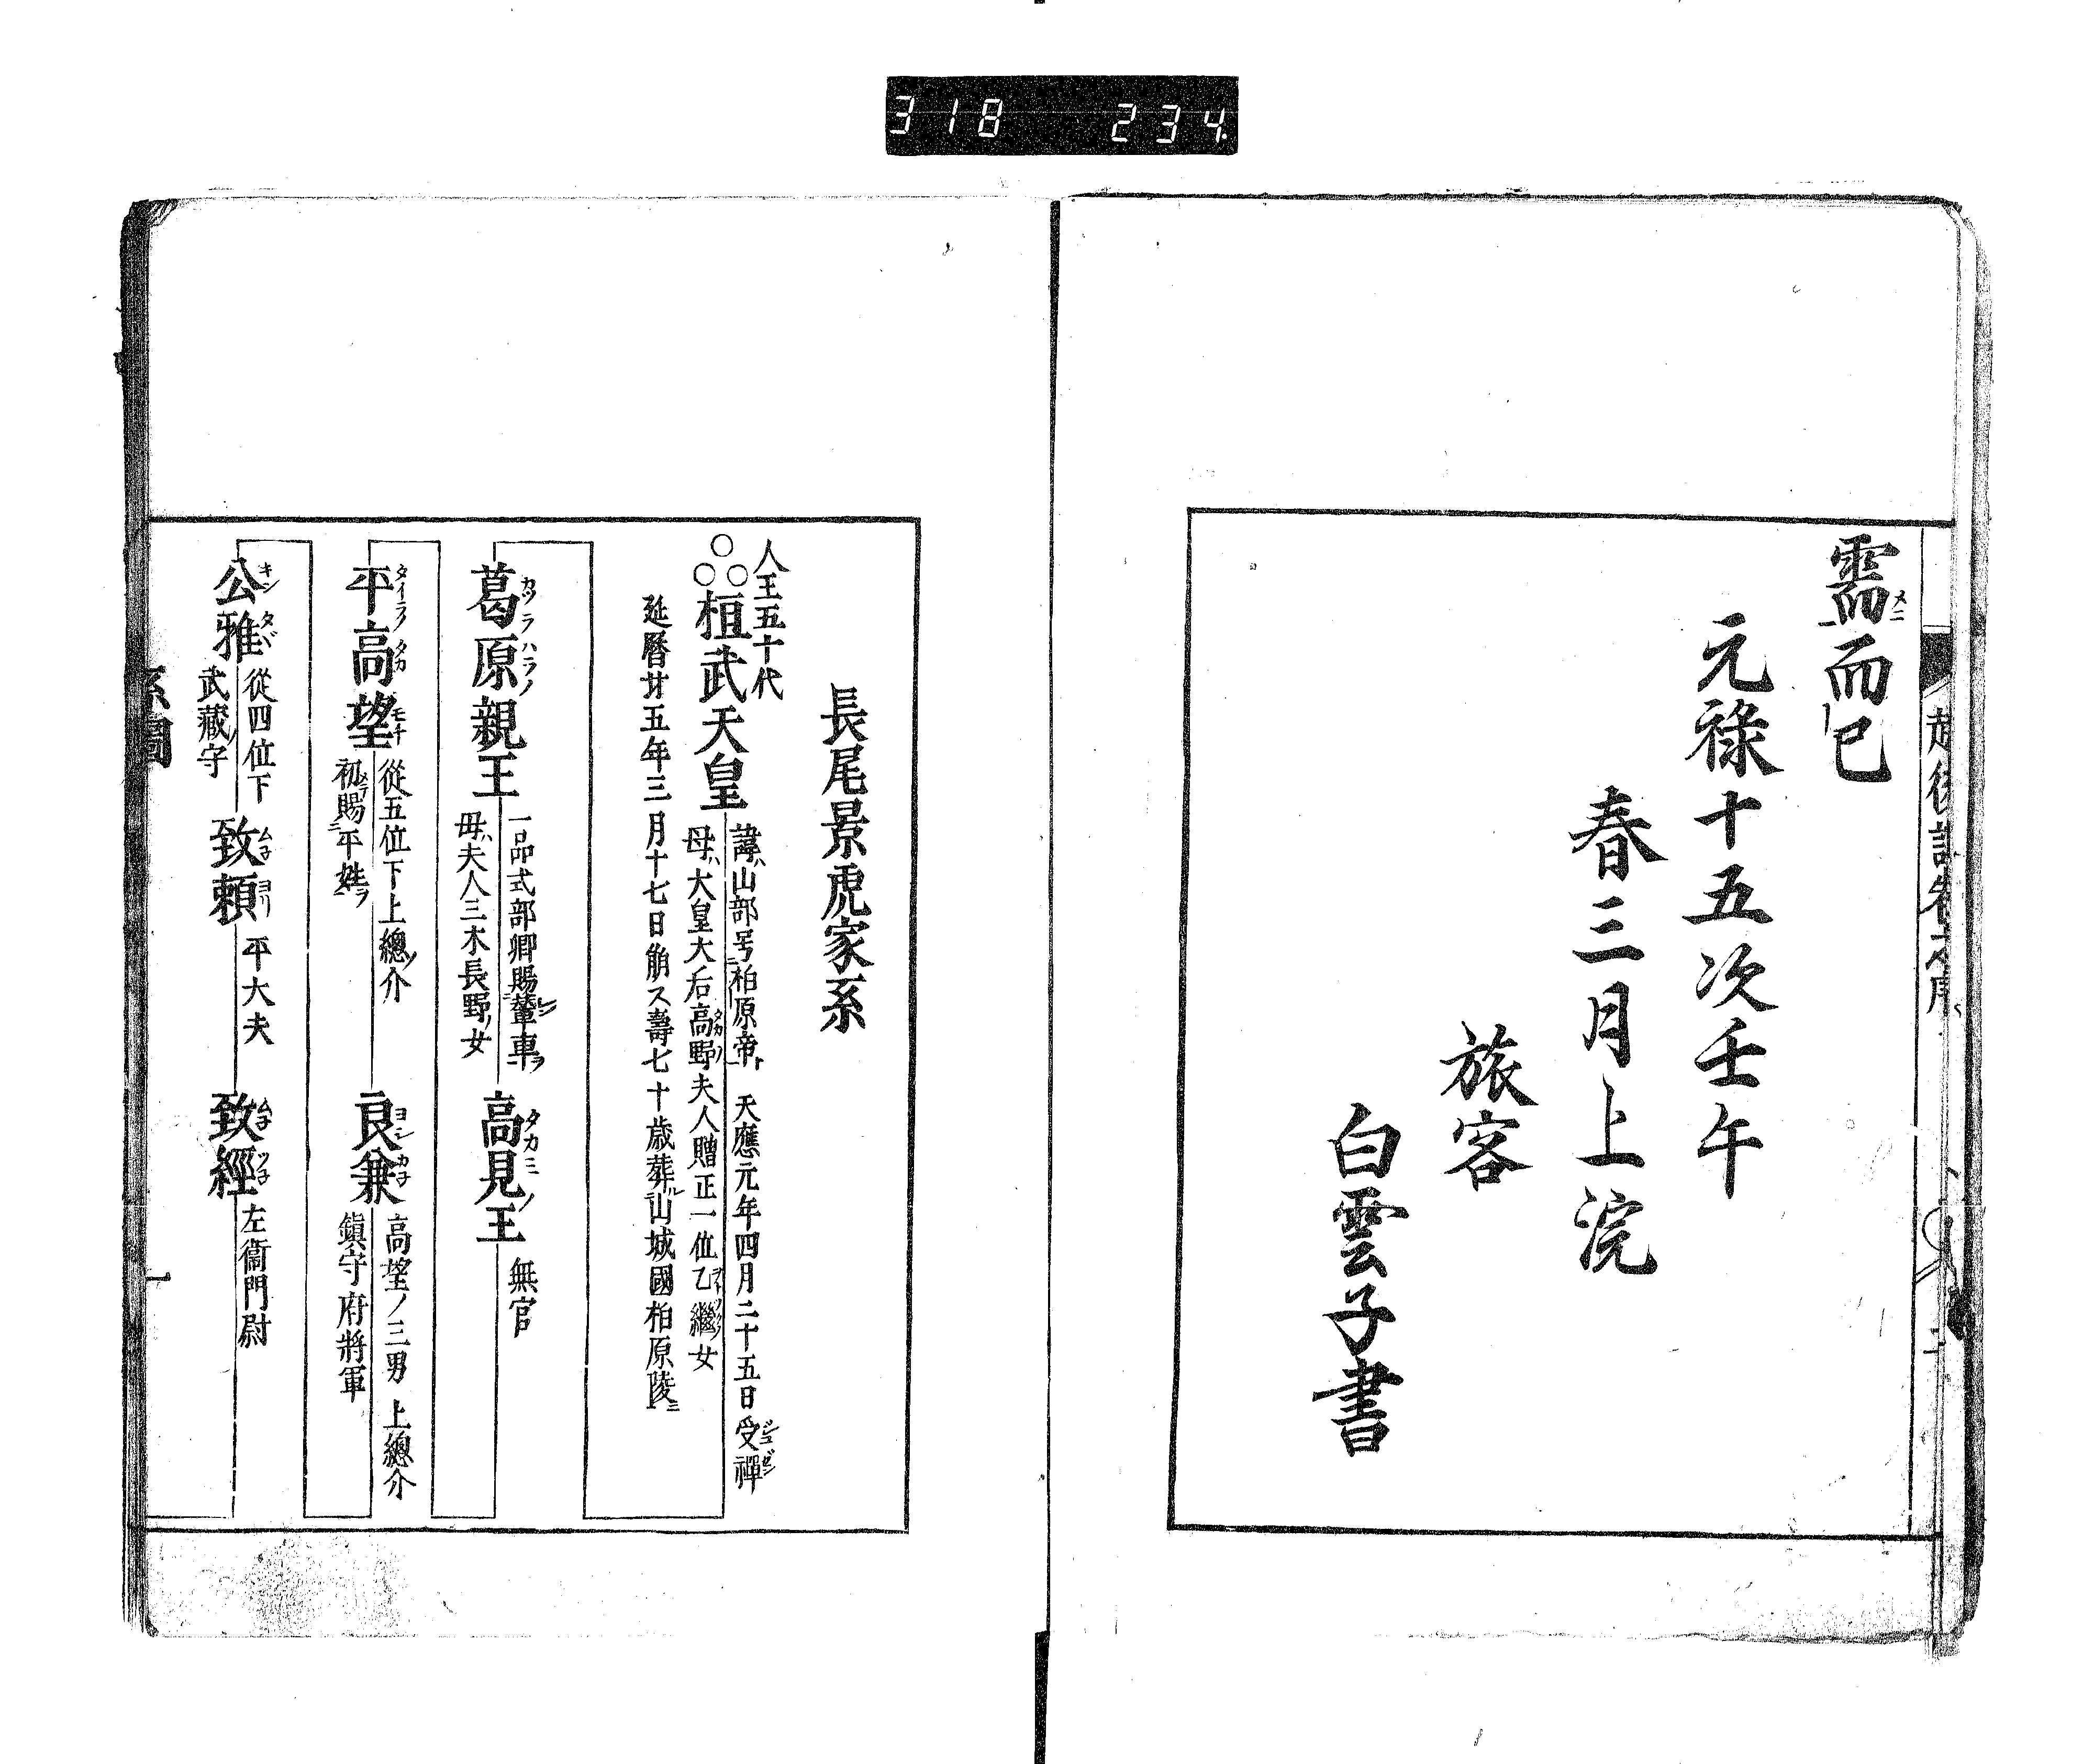 318 234
需而已
元祿十五次壬午
春三月上浣
旅客
白雲子書
長尾景虎家系
人王五十代
桓武天皇
諱ハ山部号柏原帝ト 天應元年四月二十五日受禪
母ハ大皇大后高野夫人贈正一位乙繼女
延曆廿五年三月十七日崩ス壽七十歲葬ル山城國柏原陵ニ
葛原親王
一品式部卿賜輦車ヲ
母ハ夫人三木長野ノ女
高見王
無官
平高望
從五位下上總ノ介
初賜平姓ヲ
良兼
高望ノ三男 上總介
鎭守府將軍
公雅
從四位下
武藏ノ守
致賴
平大夫
致經
左衞門尉
系圖 一